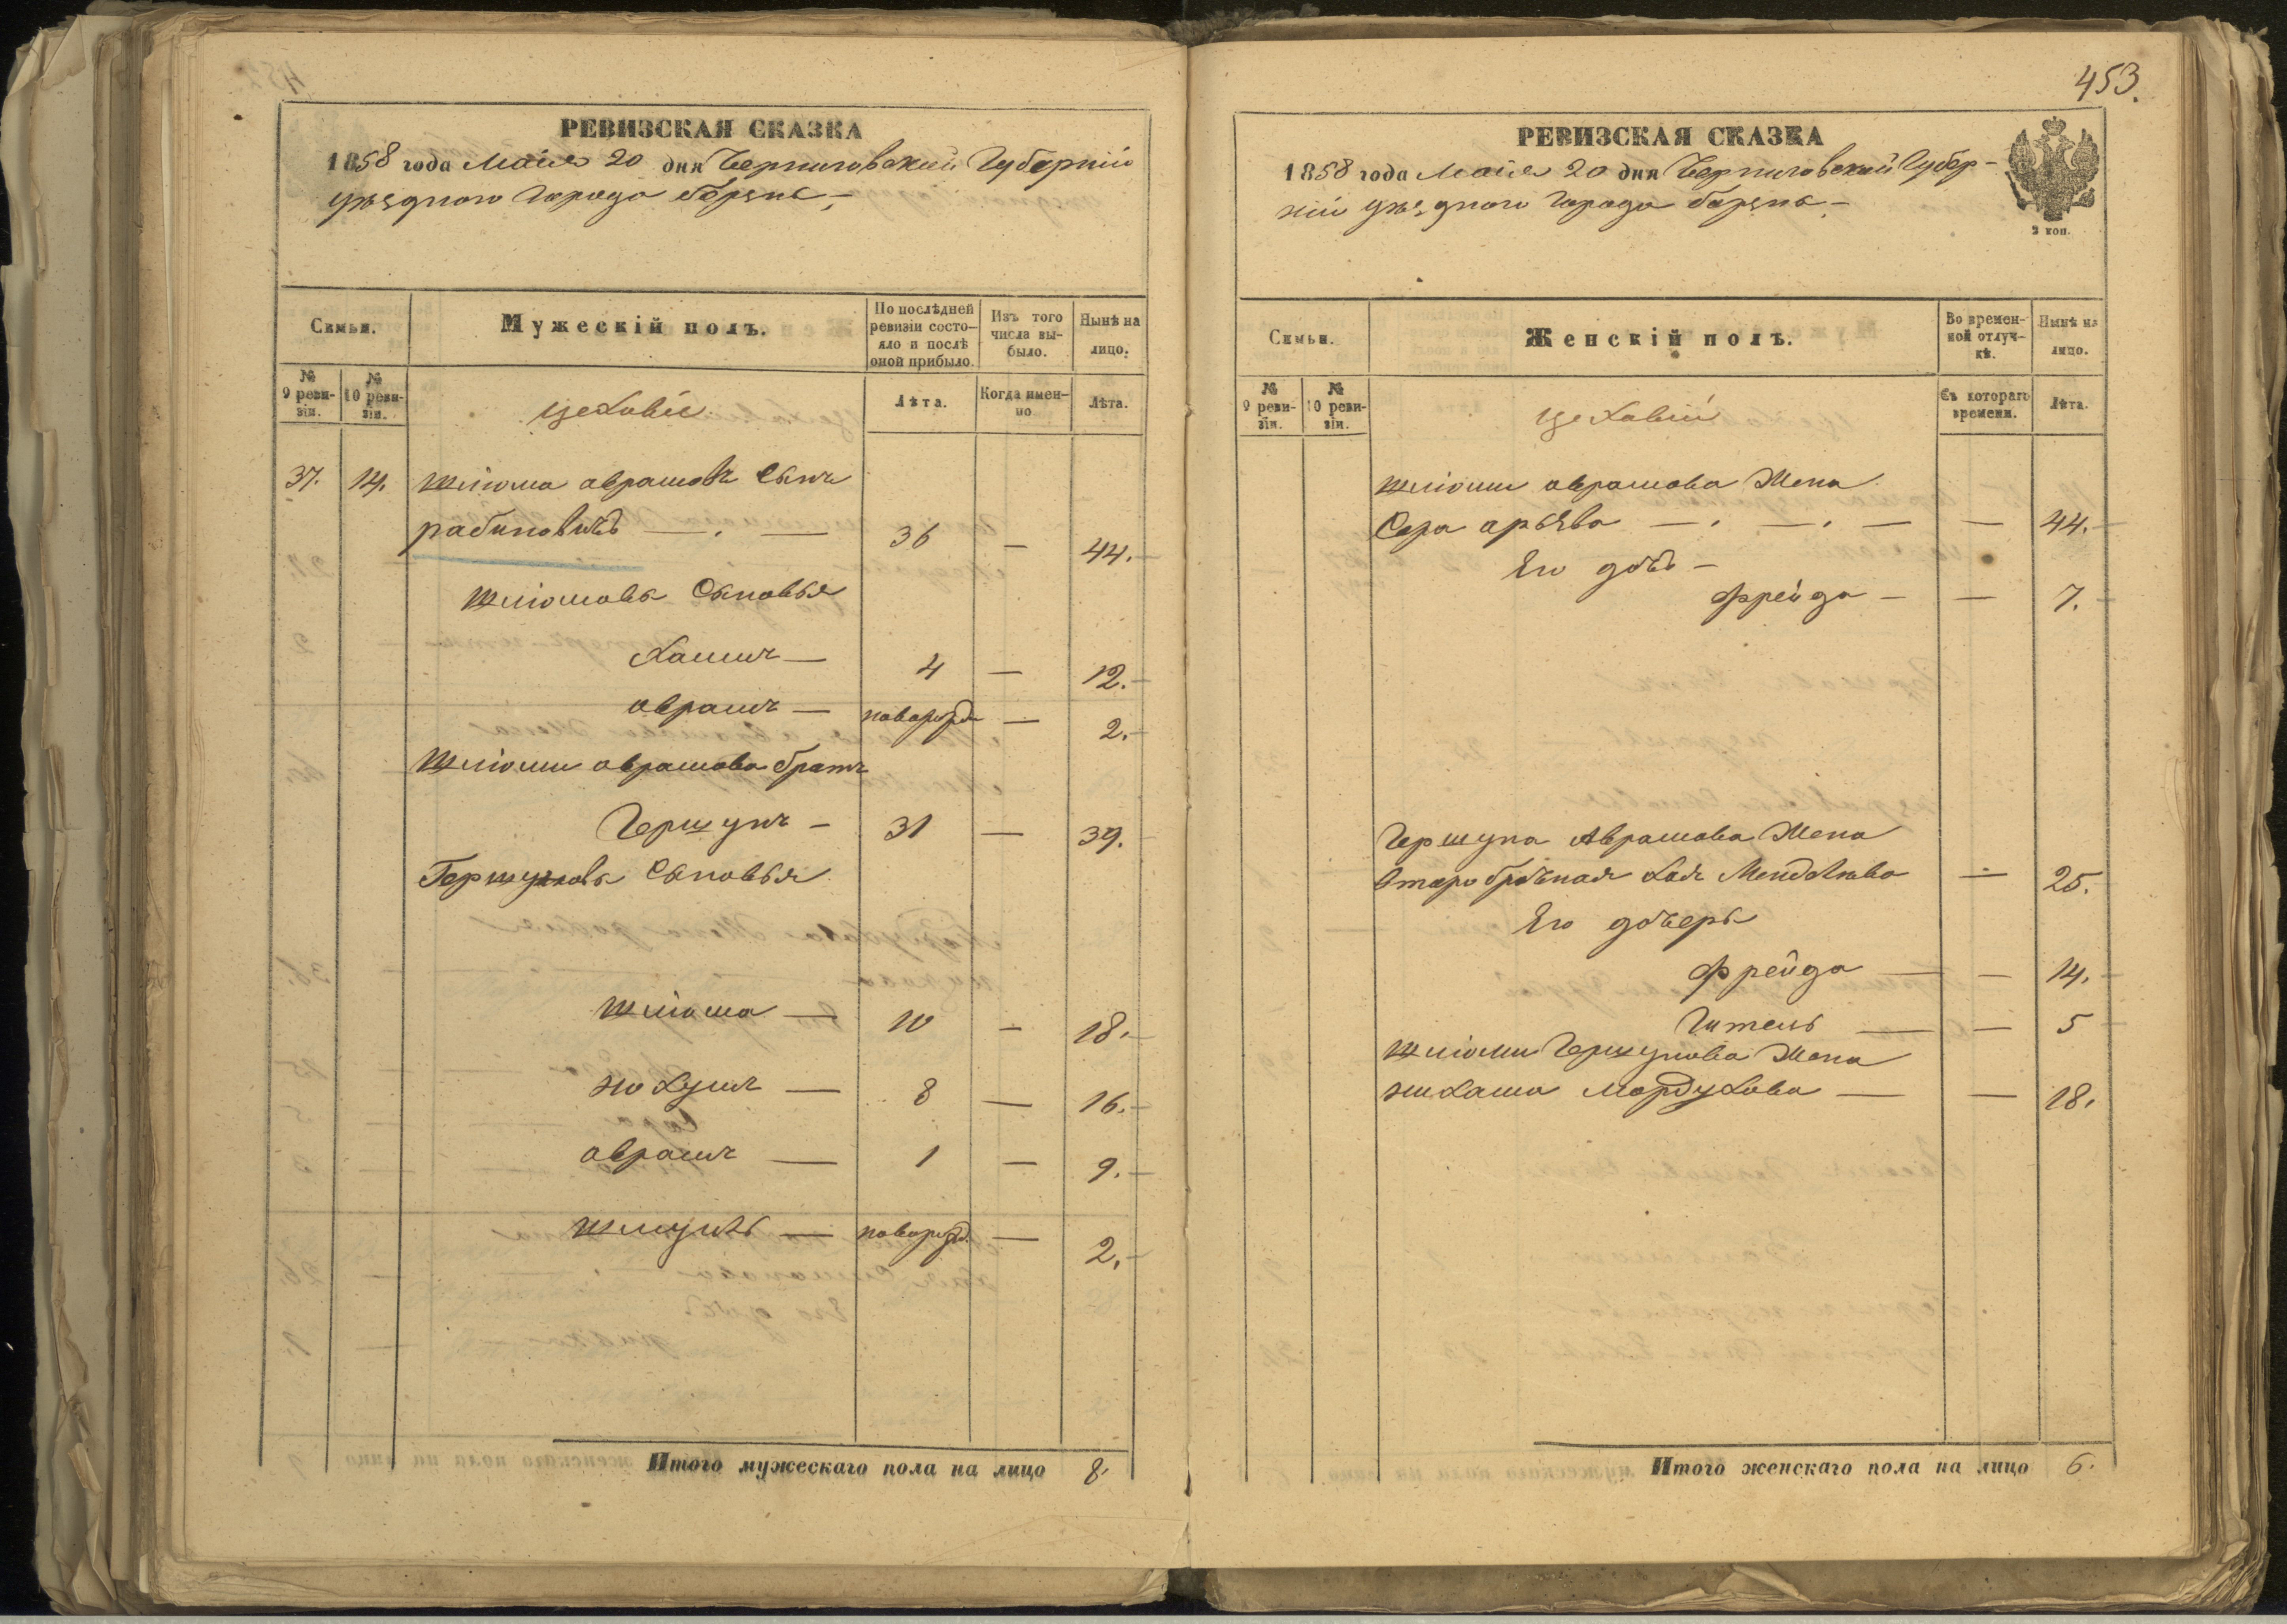 РЕВИЗСКАЯ СКАЗКА
1858 года Маія 20 дня Черниговской Губерніи
уѣзднаго Города борзны
Семьи.
Мужескій полъ.
По послѣдней ревизіи состояло и послѣ оной прибыло.
Изъ того числа выбыло.
Нынѣ на лицо.
№ 9 ревизіи.
№ 10 ревизіи.
цеховіе
Лѣта.
Когда именно
Лѣта.
37. 14. Шліома аврамовъ Сынъ
рабиновичъ — . — 36 — 44.
Шліомовы Сыновья
Хаимъ — 4 — 12.
аврамъ — новорожд — 2.
Шліомы аврамова братъ
Гершунъ — 31 — 39.
Гершуновы Сыновья
Шліома — 10 — 18.
нохумъ — 8 — 16.
аврамъ — 1 — 9.
новорожд. — 2.
Итого мужескаго пола на лицо 8.
453.
РЕВИЗСКАЯ СКАЗКА
1858 года Маія 20 дня Черниговской Губер-
ніи уѣзднаго Города борзны
2 коп.
Семьи.
Женскій полъ.
Во временной отлучкѣ.
Нынѣ на лицо.
№ 9 ревизіи.
№ 10 ревизіи.
цеховіи
Съ котораго времени.
Лѣта.
Шліомы аврамова Жена
Сора арьева — . — . — — 44.
Его дочь —
Фрейда — — 7.
Гершуна Аврамова Жена
второбрачная Хая Менделева — 25.
Его дочери
Фрейда — — 14.
Гитель — — 5
Шліомы Гершунова Жена
Мордухова — — 18.
Итого женскаго пола на лицо 6.